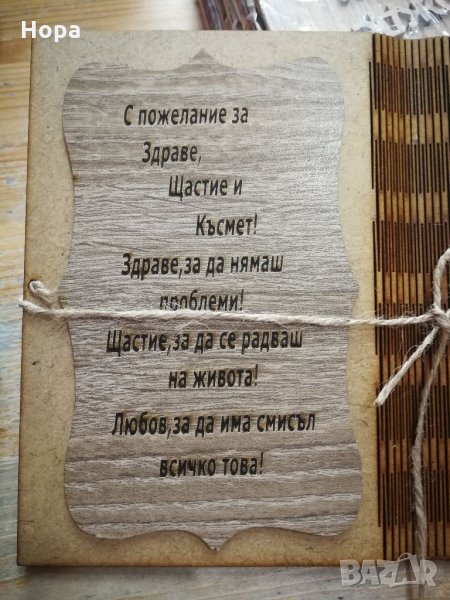 Нора
С пожелание за
Здраве,
Щастие и
Късмет!
Здраве,за да нямаш
проблеми!
Щастие,за да се радваш
на живота!
Любов,за да има смисъл
всичко това!
BAZAR